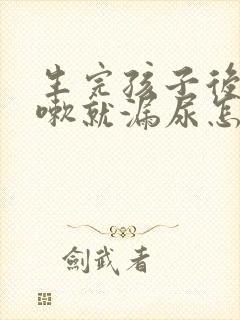 生完孩子後
嗽就漏尿怎
劍武者